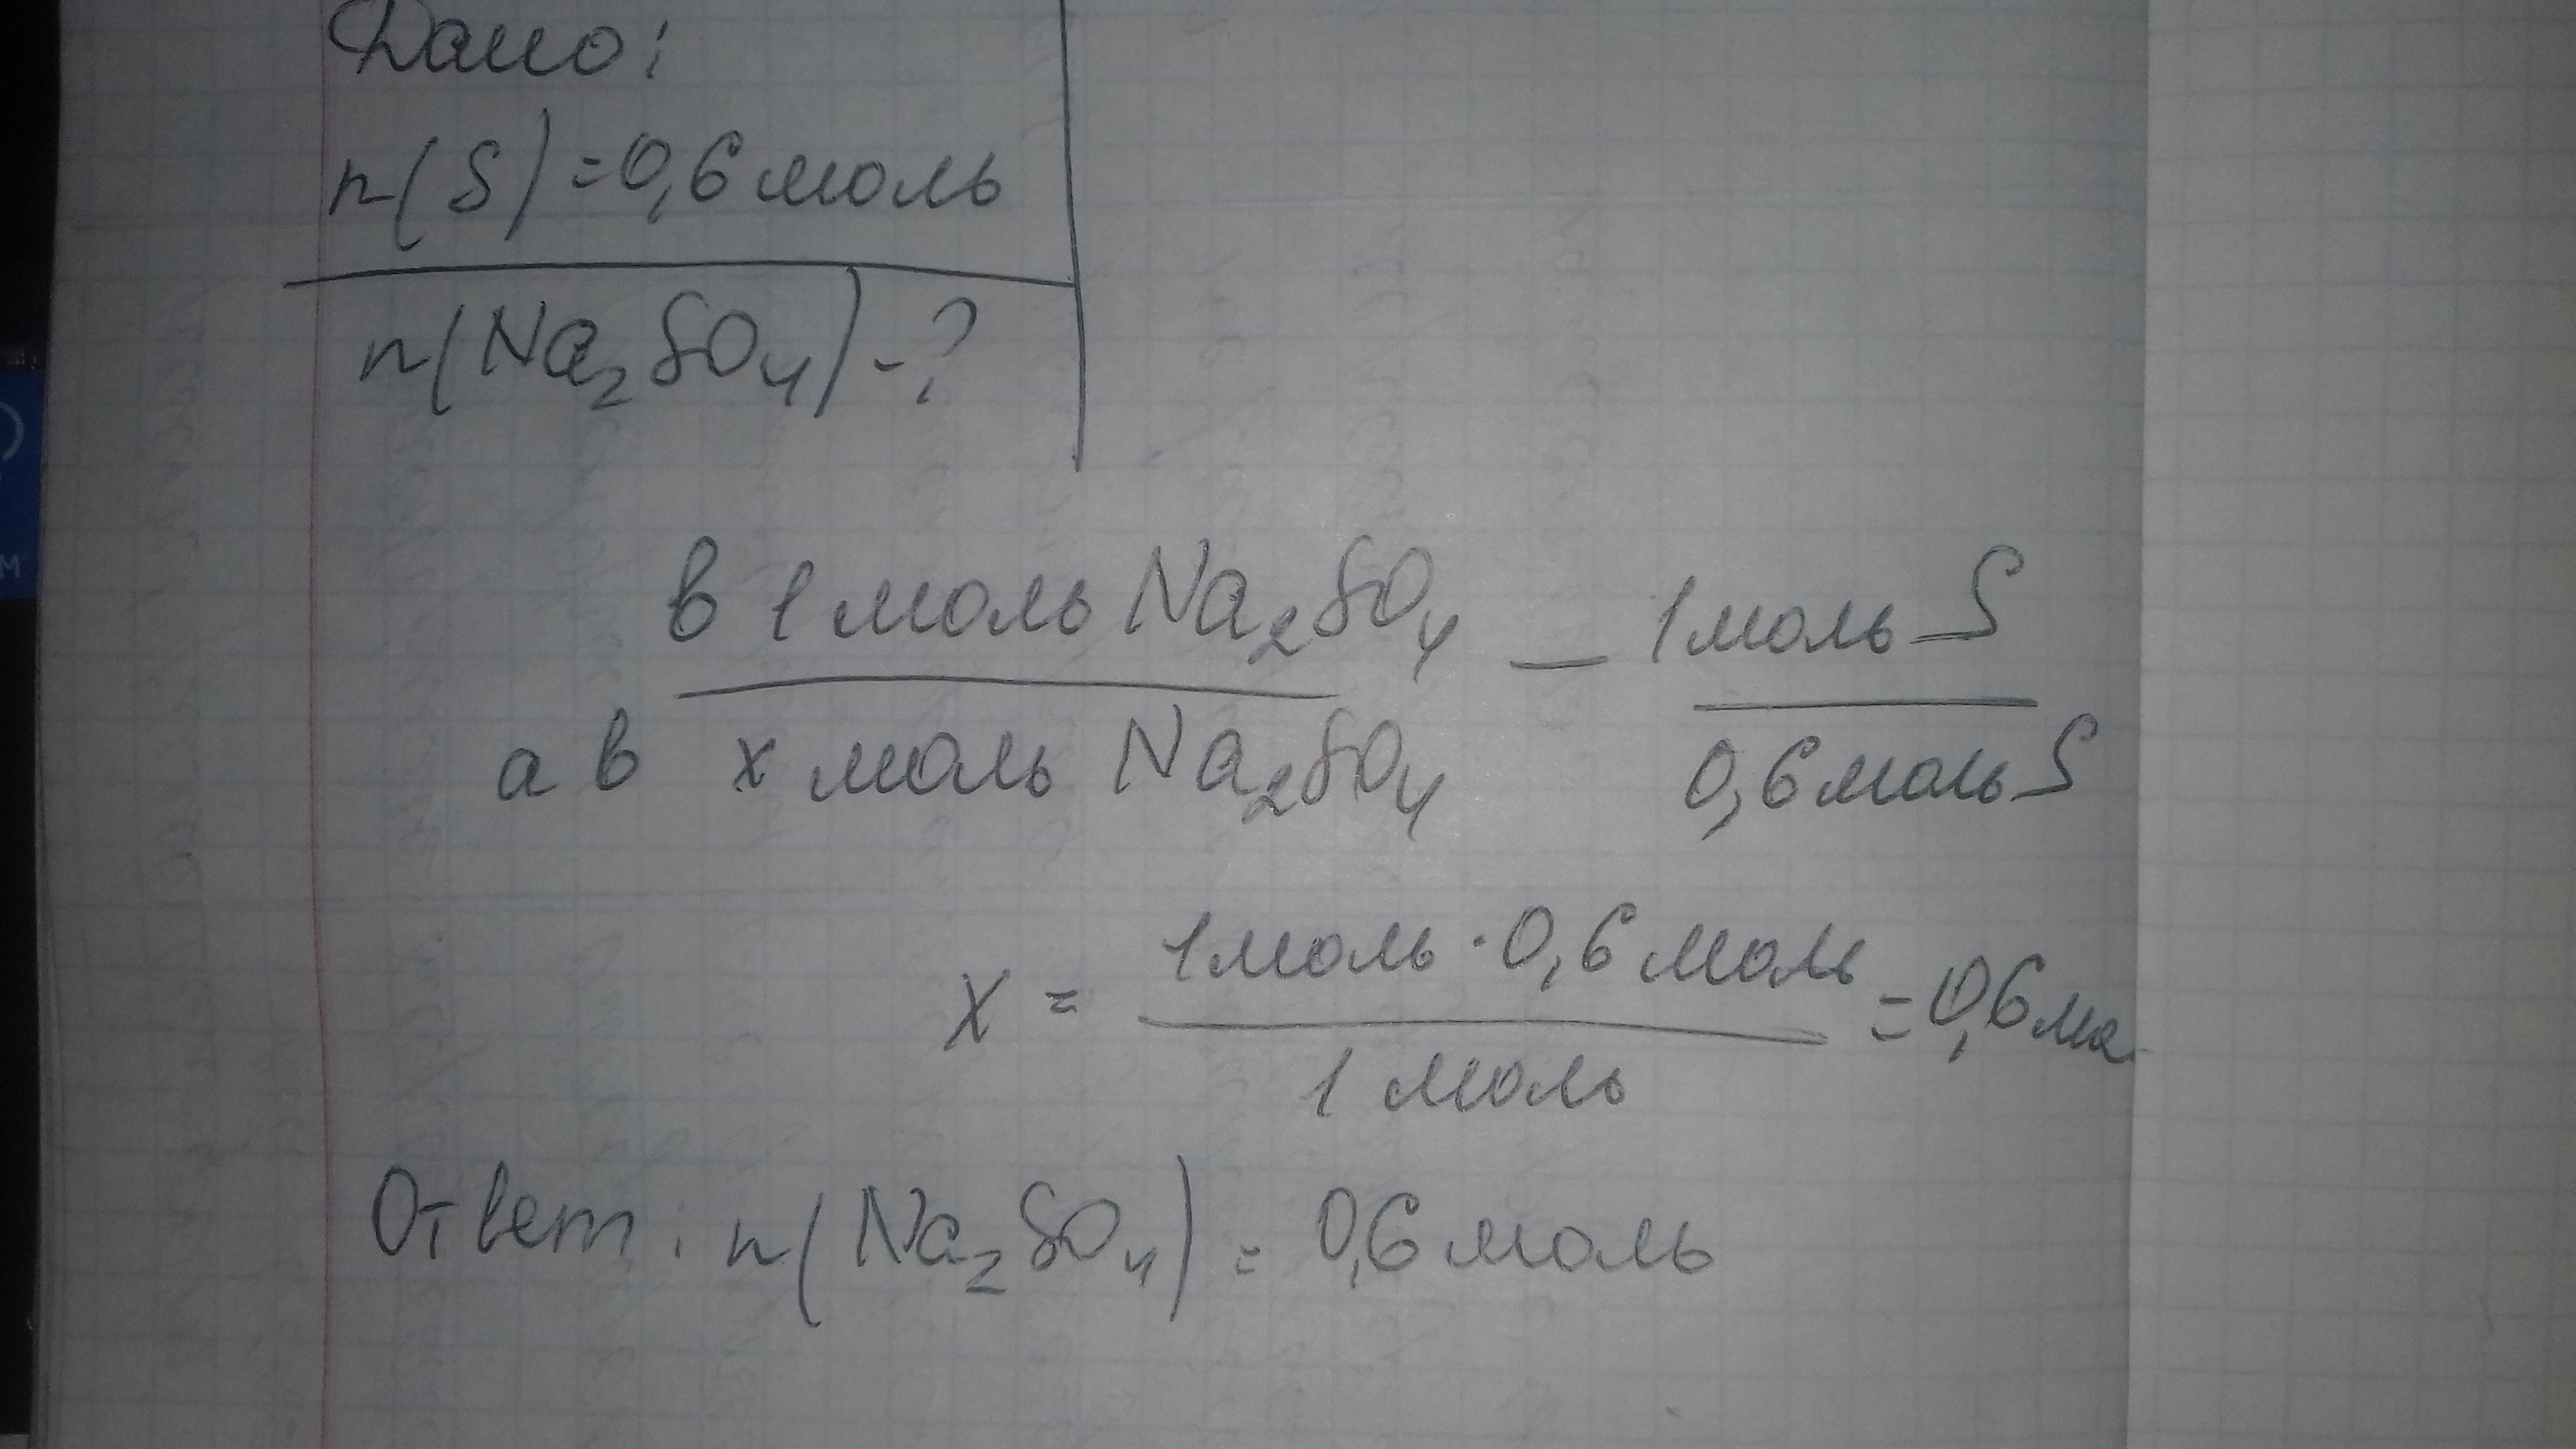 Дано:
n(S) = 0,6 моль
n(Na₂SO₄) - ?
в 1 моль Na₂SO₄ — 1 моль S
а в x моль Na₂SO₄ 0,6 моль S
x = 1 моль · 0,6 моль / 1 моль = 0,6 мо
Ответ: n(Na₂SO₄) = 0,6 моль
м